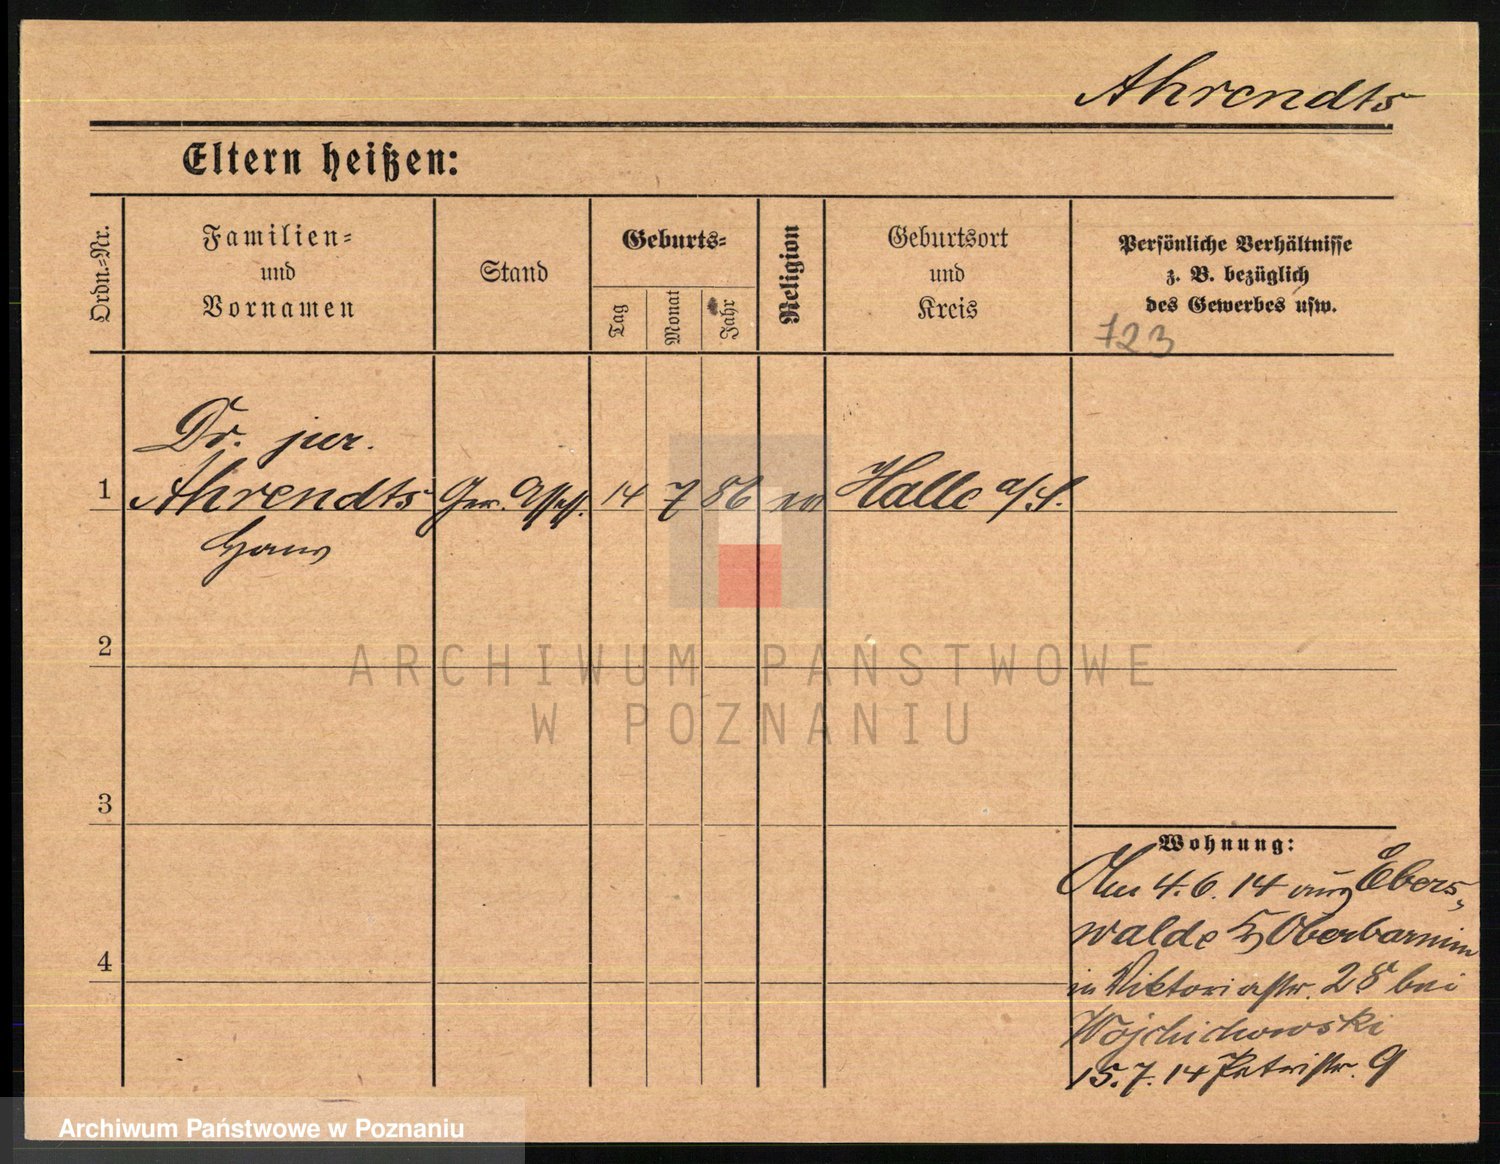 Ahrendts
Eltern heißen:
Ordn.-Nr.
Familien-
und
Vornamen
Stand
Geburts-
Tag
Monat
Jahr
Religion
Geburtsort
und
Kreis
Persönliche Verhältnisse
z. B. bezüglich
des Gewerbes usw.
723
Dr. jur.
1 Ahrendts Ger. Assess. 14 7 86 ev Halle a/S.
Hans
2
3
4
Wohnung:
Am 4.6.14 aus Ebers-
walde Kr Oberbarnim
in Viktoriastr. 28 bei
Wojchichowski
15.7.14 Petristr. 9
ARCHIWUM PAŃSTWOWE
W POZNANIU
Archiwum Państwowe w Poznaniu